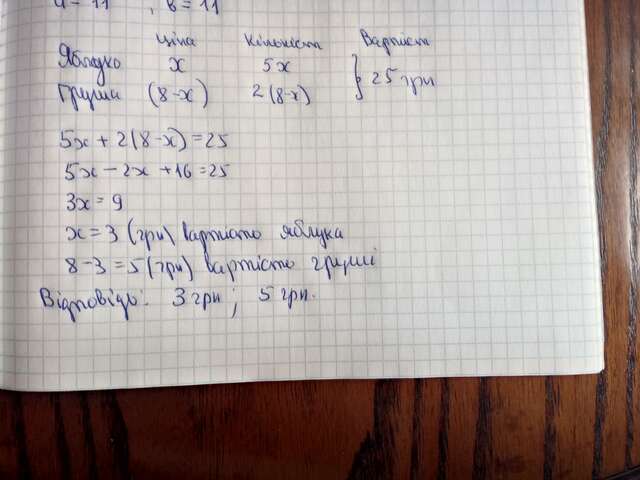 a = 11 , b = 11
Ціна Кількість Вартість
Яблуко x 5x
Груша (8-x) 2(8-x) } 25 грн
5x + 2(8-x) = 25
5x - 2x + 16 = 25
3x = 9
x = 3 (грн) вартість яблука
8 - 3 = 5 (грн) вартість груші
Відповідь: 3 грн ; 5 грн.